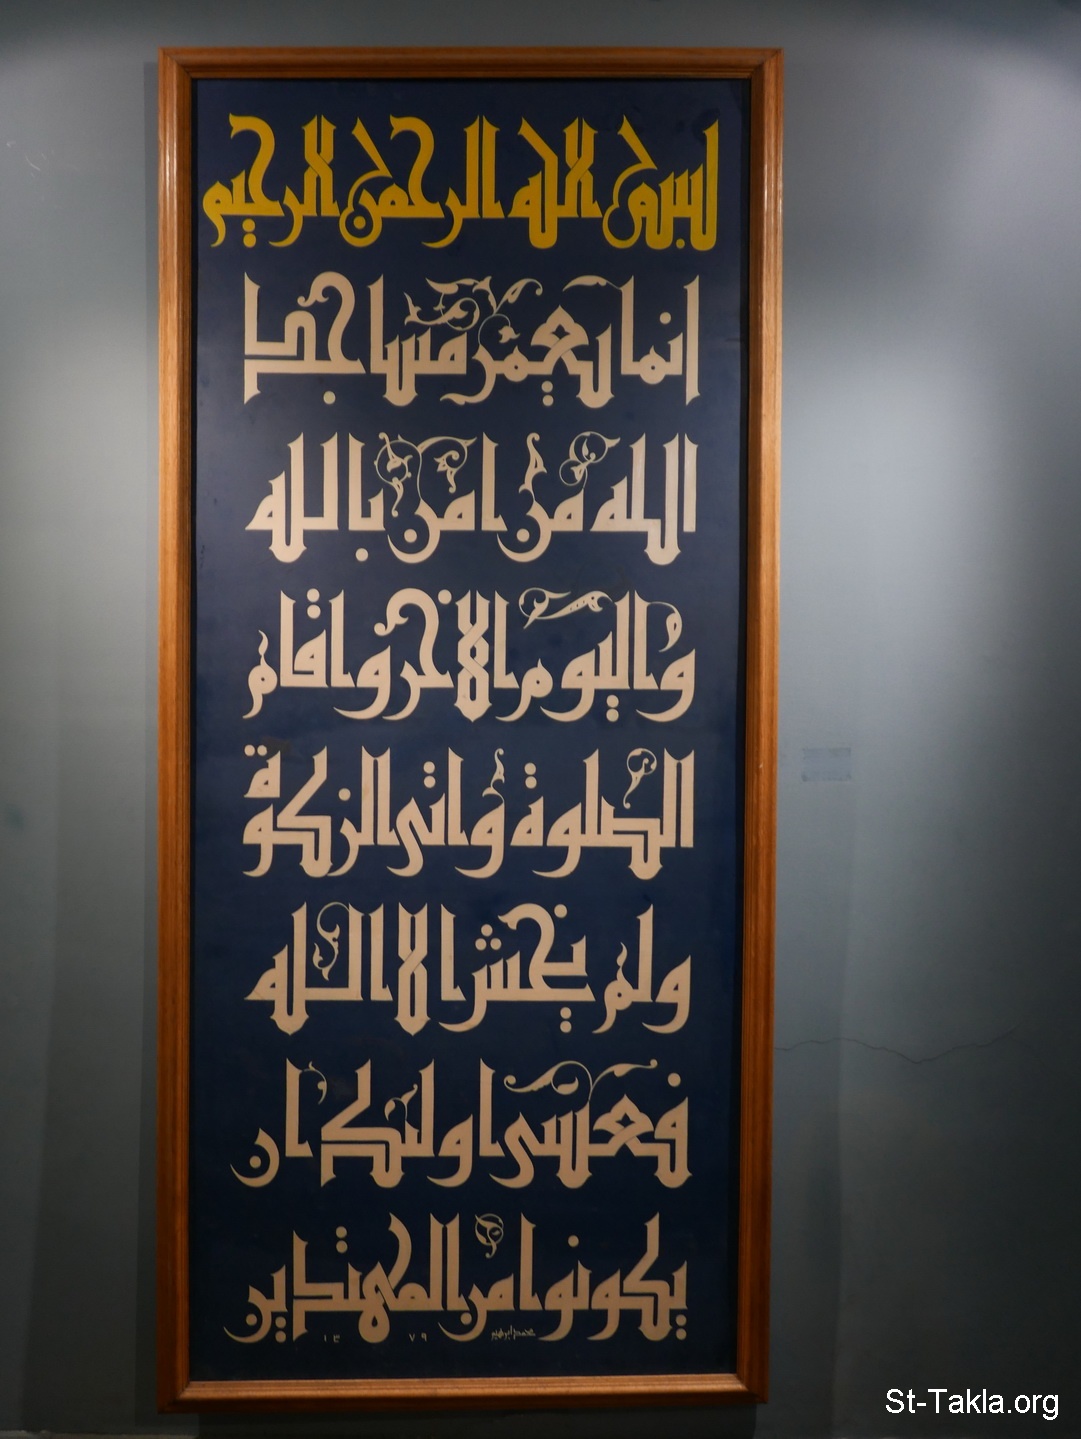 بسم الله الرحمن الرحيم
انما يعمر مساجد
الله من امن بالله
واليوم الاخر واقام
الصلوة واتى الزكوة
ولم يخش الا الله
فعسى اولئك ان
يكونوا من المهتدين
١٣٧٩
St-Takla.org